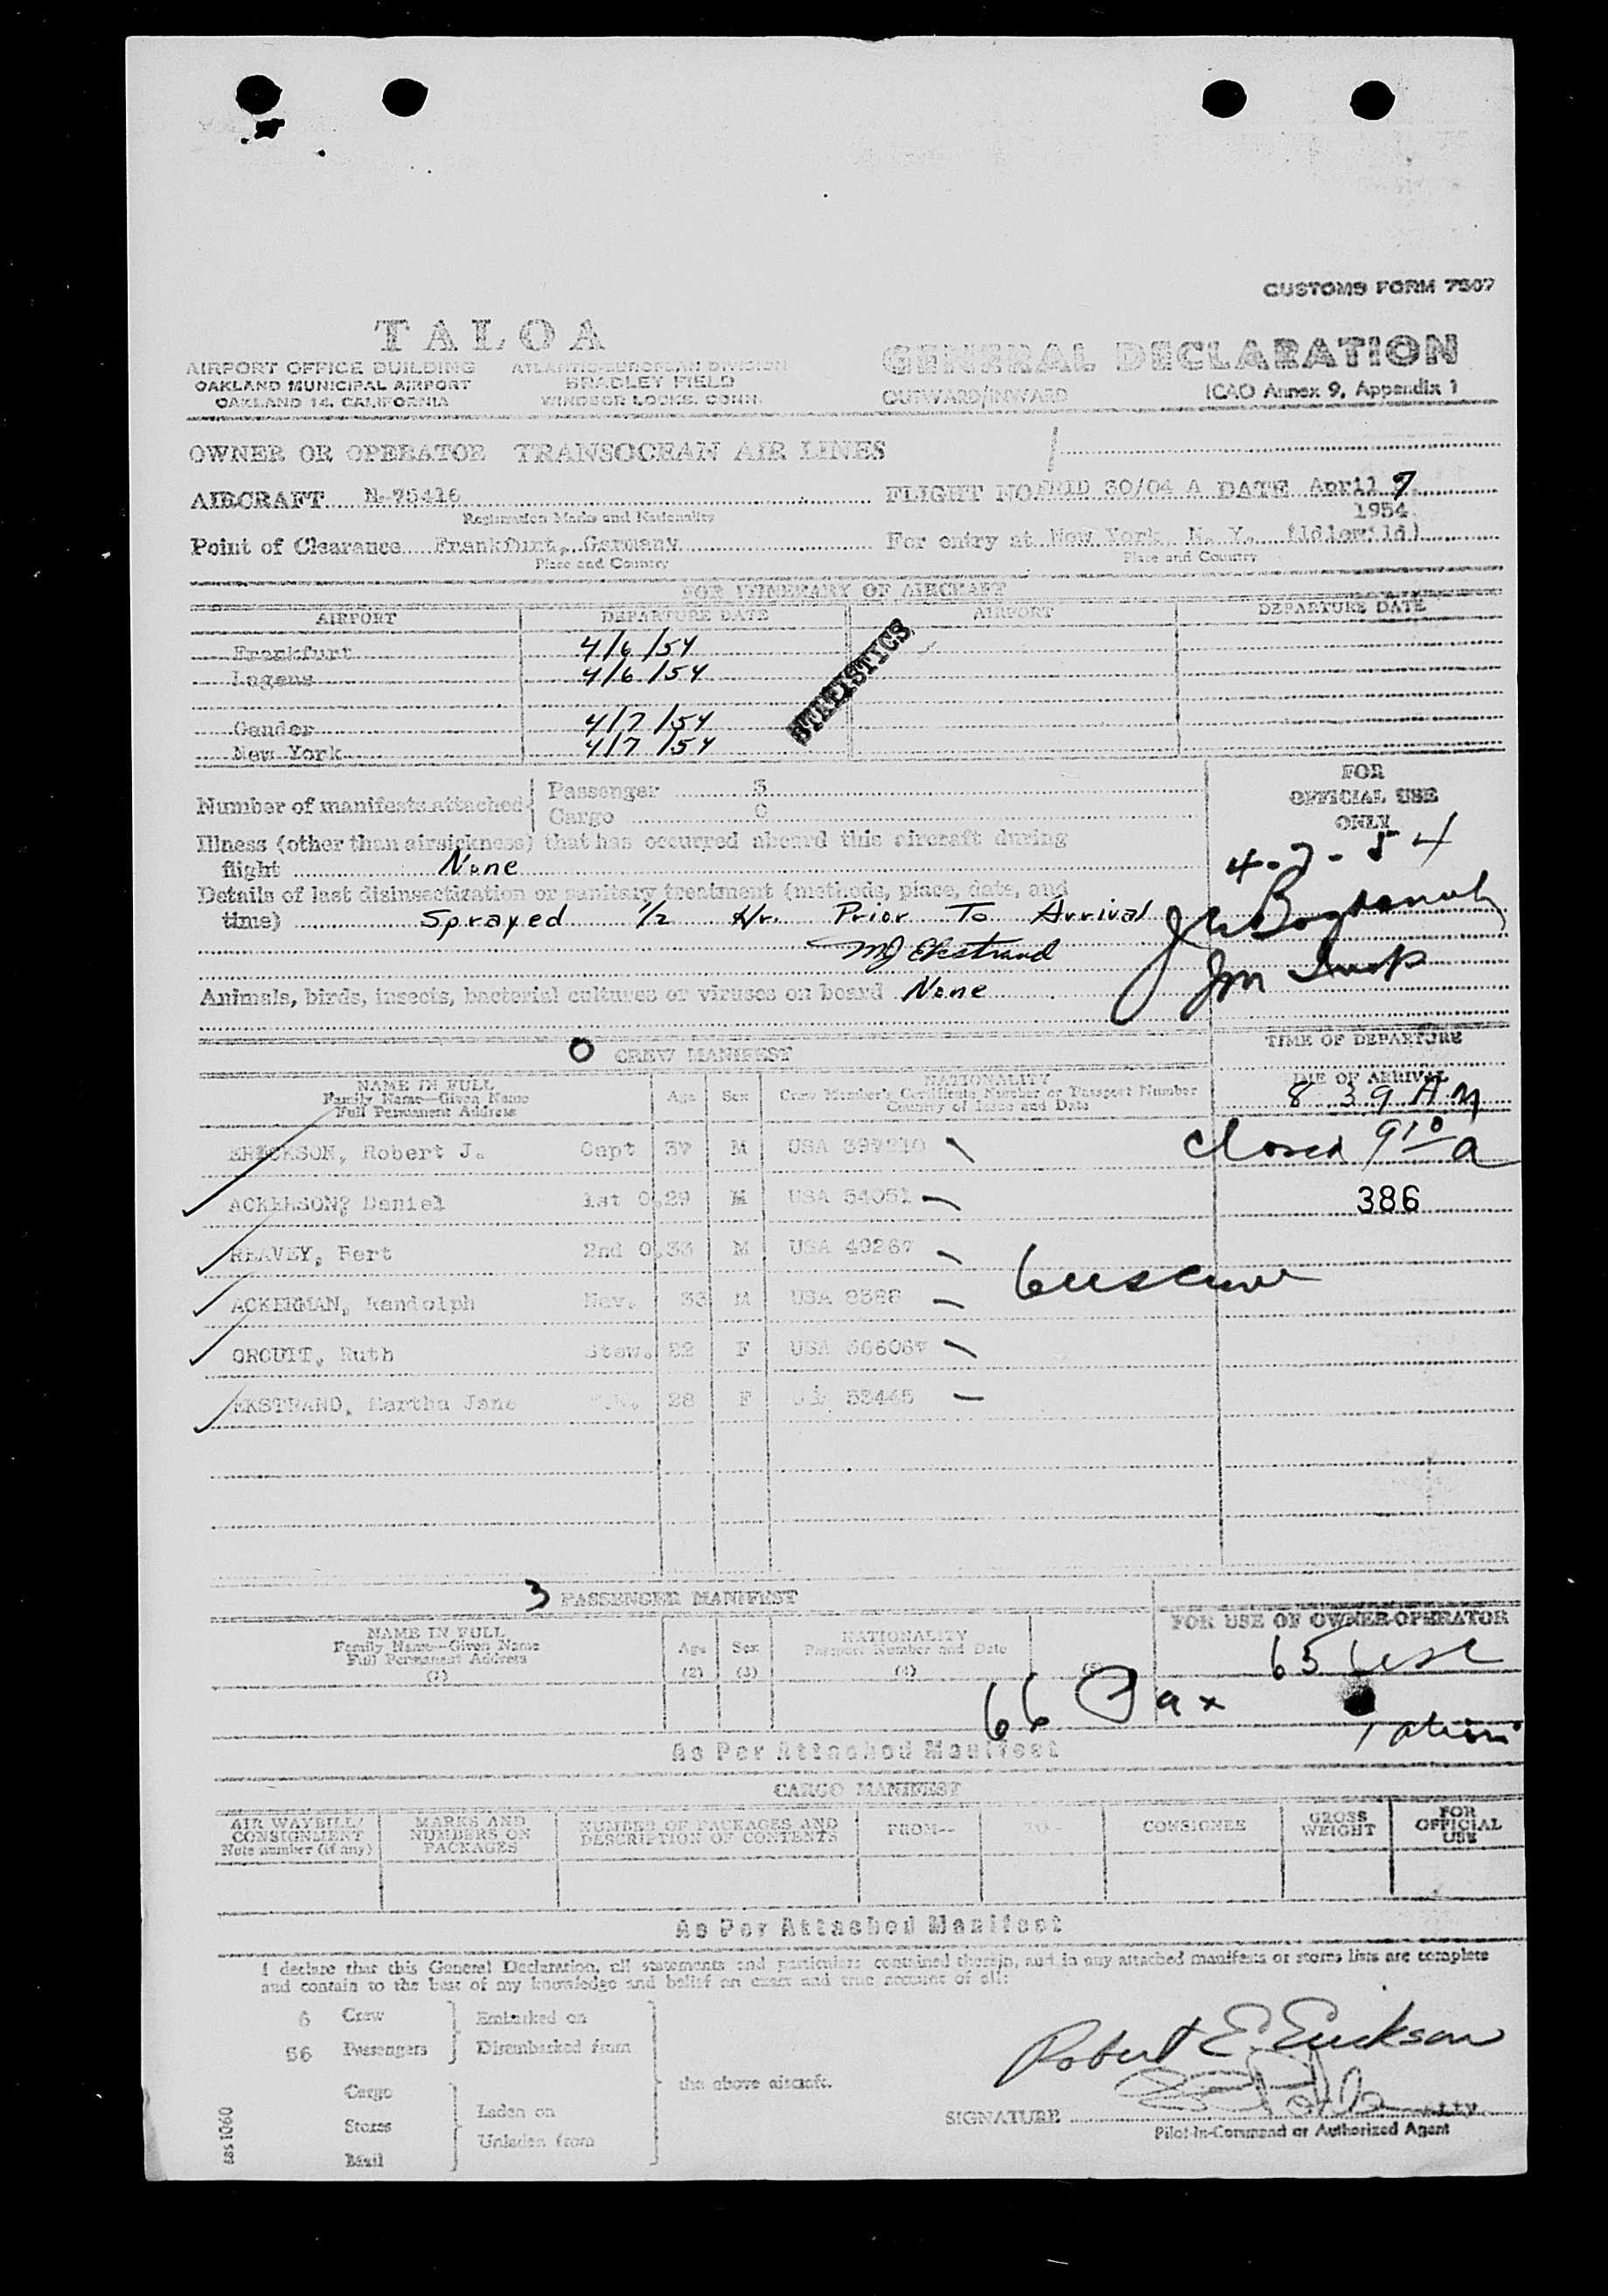 CUSTOMS FORM 7507
TALOA
AIRPORT OFFICE BUILDING
OAKLAND MUNICIPAL AIRPORT
OAKLAND 14, CALIFORNIA
ATLANTIC-EUROPEAN DIVISION
BRADLEY FIELD
WINDSOR LOCKS, CONN.
GENERAL DECLARATION
OUTWARD/INWARD
ICAO Annex 9, Appendix 1
OWNER OR OPERATOR TRANSOCEAN AIR LINES
AIRCRAFT N-75416 FLIGHT NO. 30/04 A DATE April 7
1954
Registration Marks and Nationality
Point of Clearance Frankfurt, Germany For entry at New York N. Y. (Idlewild)
Place and Country Place and Country
FOR ITINERARY OF AIRCRAFT
AIRPORT DEPARTURE DATE AIRPORT DEPARTURE DATE
Frankfurt 4/6/54
Lagens 4/6/54
STATISTICS
Gander 4/7/54
New York 4/7/54
Number of manifests attached Passenger 3
Cargo 0
FOR
OFFICIAL USE
ONLY
4-7-54
Illness (other than airsickness) that has occurred aboard this aircraft during
flight None
Details of last disinsectization or sanitary treatment (methods, place, date, and
time) Sprayed 1/2 Hr. Prior To Arrival
MJ Ekstrand
Animals, birds, insects, bacterial cultures or viruses on board None
0 CREW MANIFEST
TIME OF DEPARTURE
NAME IN FULL
Family Name—Given Name
Full Permanent Address
Age Sex
NATIONALITY
Crew Member's Certificate Number or Passport Number
Country of Issue and Date
TIME OF ARRIVAL
8 39 AM
closed 9 10 a
ERICKSON, Robert J. Capt 37 M USA 399210
ACKERSON? Daniel 1st O. 29 M USA 54051
386
REAVEY, Bert 2nd O. 33 M USA 49267
ACKERMAN, Randolph Nav. 33 M USA 8588
ORCUIT, Ruth Stew. 22 F USA 366067
EKSTRAND, Martha Jane 28 F 53445
3 PASSENGER MANIFEST
FOR USE OF OWNER-OPERATOR
NAME IN FULL
Family Name—Given Name
Full Permanent Address
(1)
Age
(2)
Sex
(3)
NATIONALITY
Passport Number and Date
(4)
(5)
65
66 Pax
1 alien
As Per Attached Manifest
CARGO MANIFEST
AIR WAYBILL/
CONSIGNMENT
Note number (if any)
MARKS AND
NUMBERS ON
PACKAGES
NUMBER OF PACKAGES AND
DESCRIPTION OF CONTENTS
FROM--
TO--
CONSIGNEE
GROSS
WEIGHT
FOR
OFFICIAL
USE
As Per Attached Manifest
I declare that this General Declaration, all statements and particulars contained therein, and in any attached manifests or stores lists are complete
and contain to the best of my knowledge and belief an exact and true account of all:
6 Crew Embarked on
56 Passengers Disembarked from
the above aircraft.
Cargo
Stores Laden on
Mail Unladen from
Robert E. Erickson
SIGNATURE
Pilot-in-Command or Authorized Agent
sas 1060